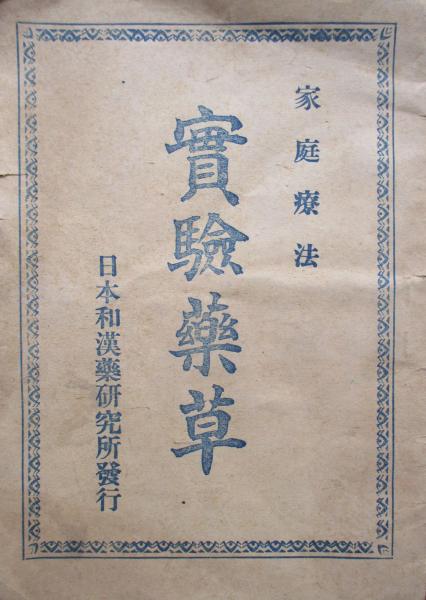 家庭療法
實驗藥草
日本和漢藥硏究所發行